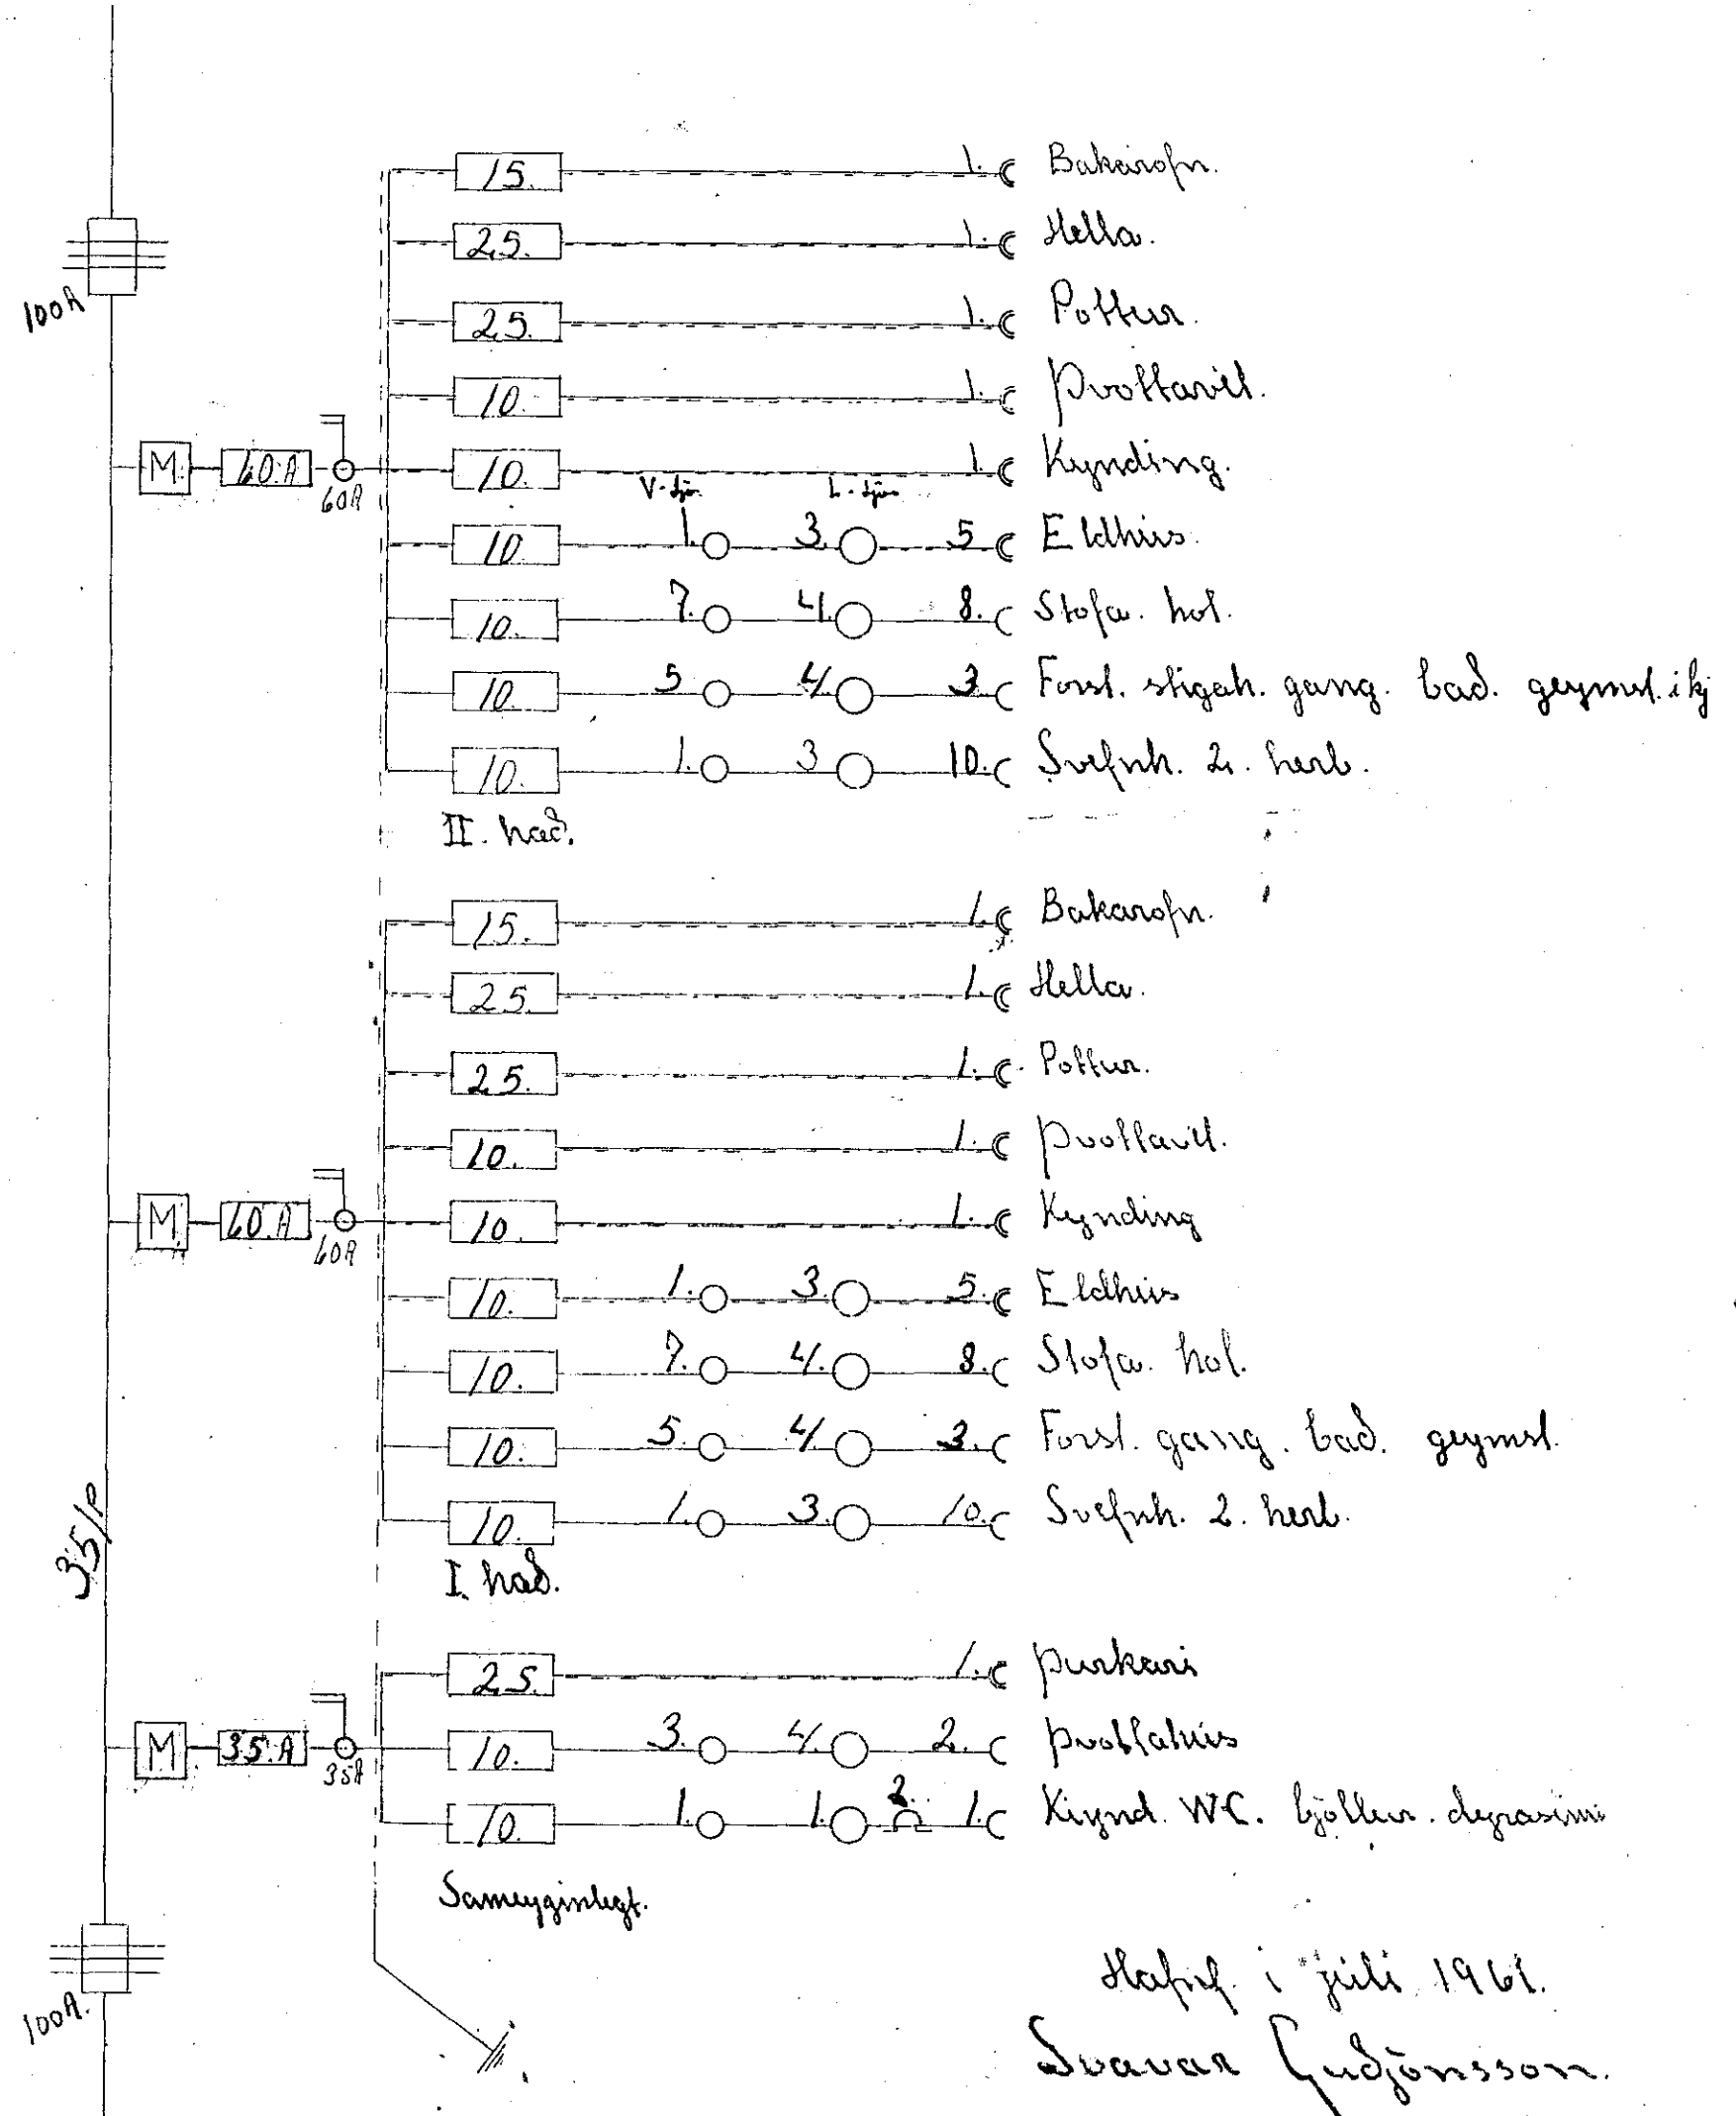 15. 1. Bakarofn.
25. 1. Hella.
100A
25. 1. Pottur.
10. 1. Þvottavél.
M. 60.A 60A 10. 1. Kynding.
V-ljós. L-ljós
10. 1. 3. 5 Eldhús.
10. 7. 4. 8. Stofa. hol.
10. 5 4 3 Forst. stigah. gang. bað. geymsl. í kj
10. 1. 3 10. Svefnh. 2. herb.
II. hæð.
15. 1. Bakarofn.
25. 1. Hella.
25. 1. Pottur.
10. 1. Þvottavél.
M. 60.A 60A 10. 1. Kynding
10. 1. 3. 5. Eldhús
10. 7. 4. 8. Stofa. hol.
10. 5. 4. 3. Forst. gang. bað. geymsl.
10. 1. 3. 10. Svefnh. 2. herb.
35/P
I. hæð.
25. 1. Þurkari
M 35.A 35A 10. 3. 4. 2. Þvottahús
10. 1. 1. 2. 1. Kynd. WC. bjöllur. dyrasími
Sameyginlegt.
100A.
Hafnf. í júlí 1961.
Svavar Guðjónsson.